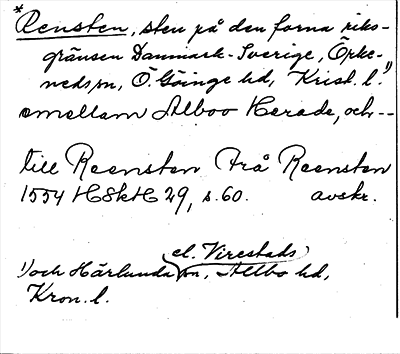 *Rensten, sten på den forna riks-
gränsen Danmark-Sverige, Örke-
neds sn, Ö. Göinge hd, Krist. l.1)
emellam Alboo Herade, och --
till Reensten Frå Reensten
1554 HSkH 29, s. 60. avskr.
el. Virestads
1) och Härlunda sn, Allbo hd,
Kron. l.